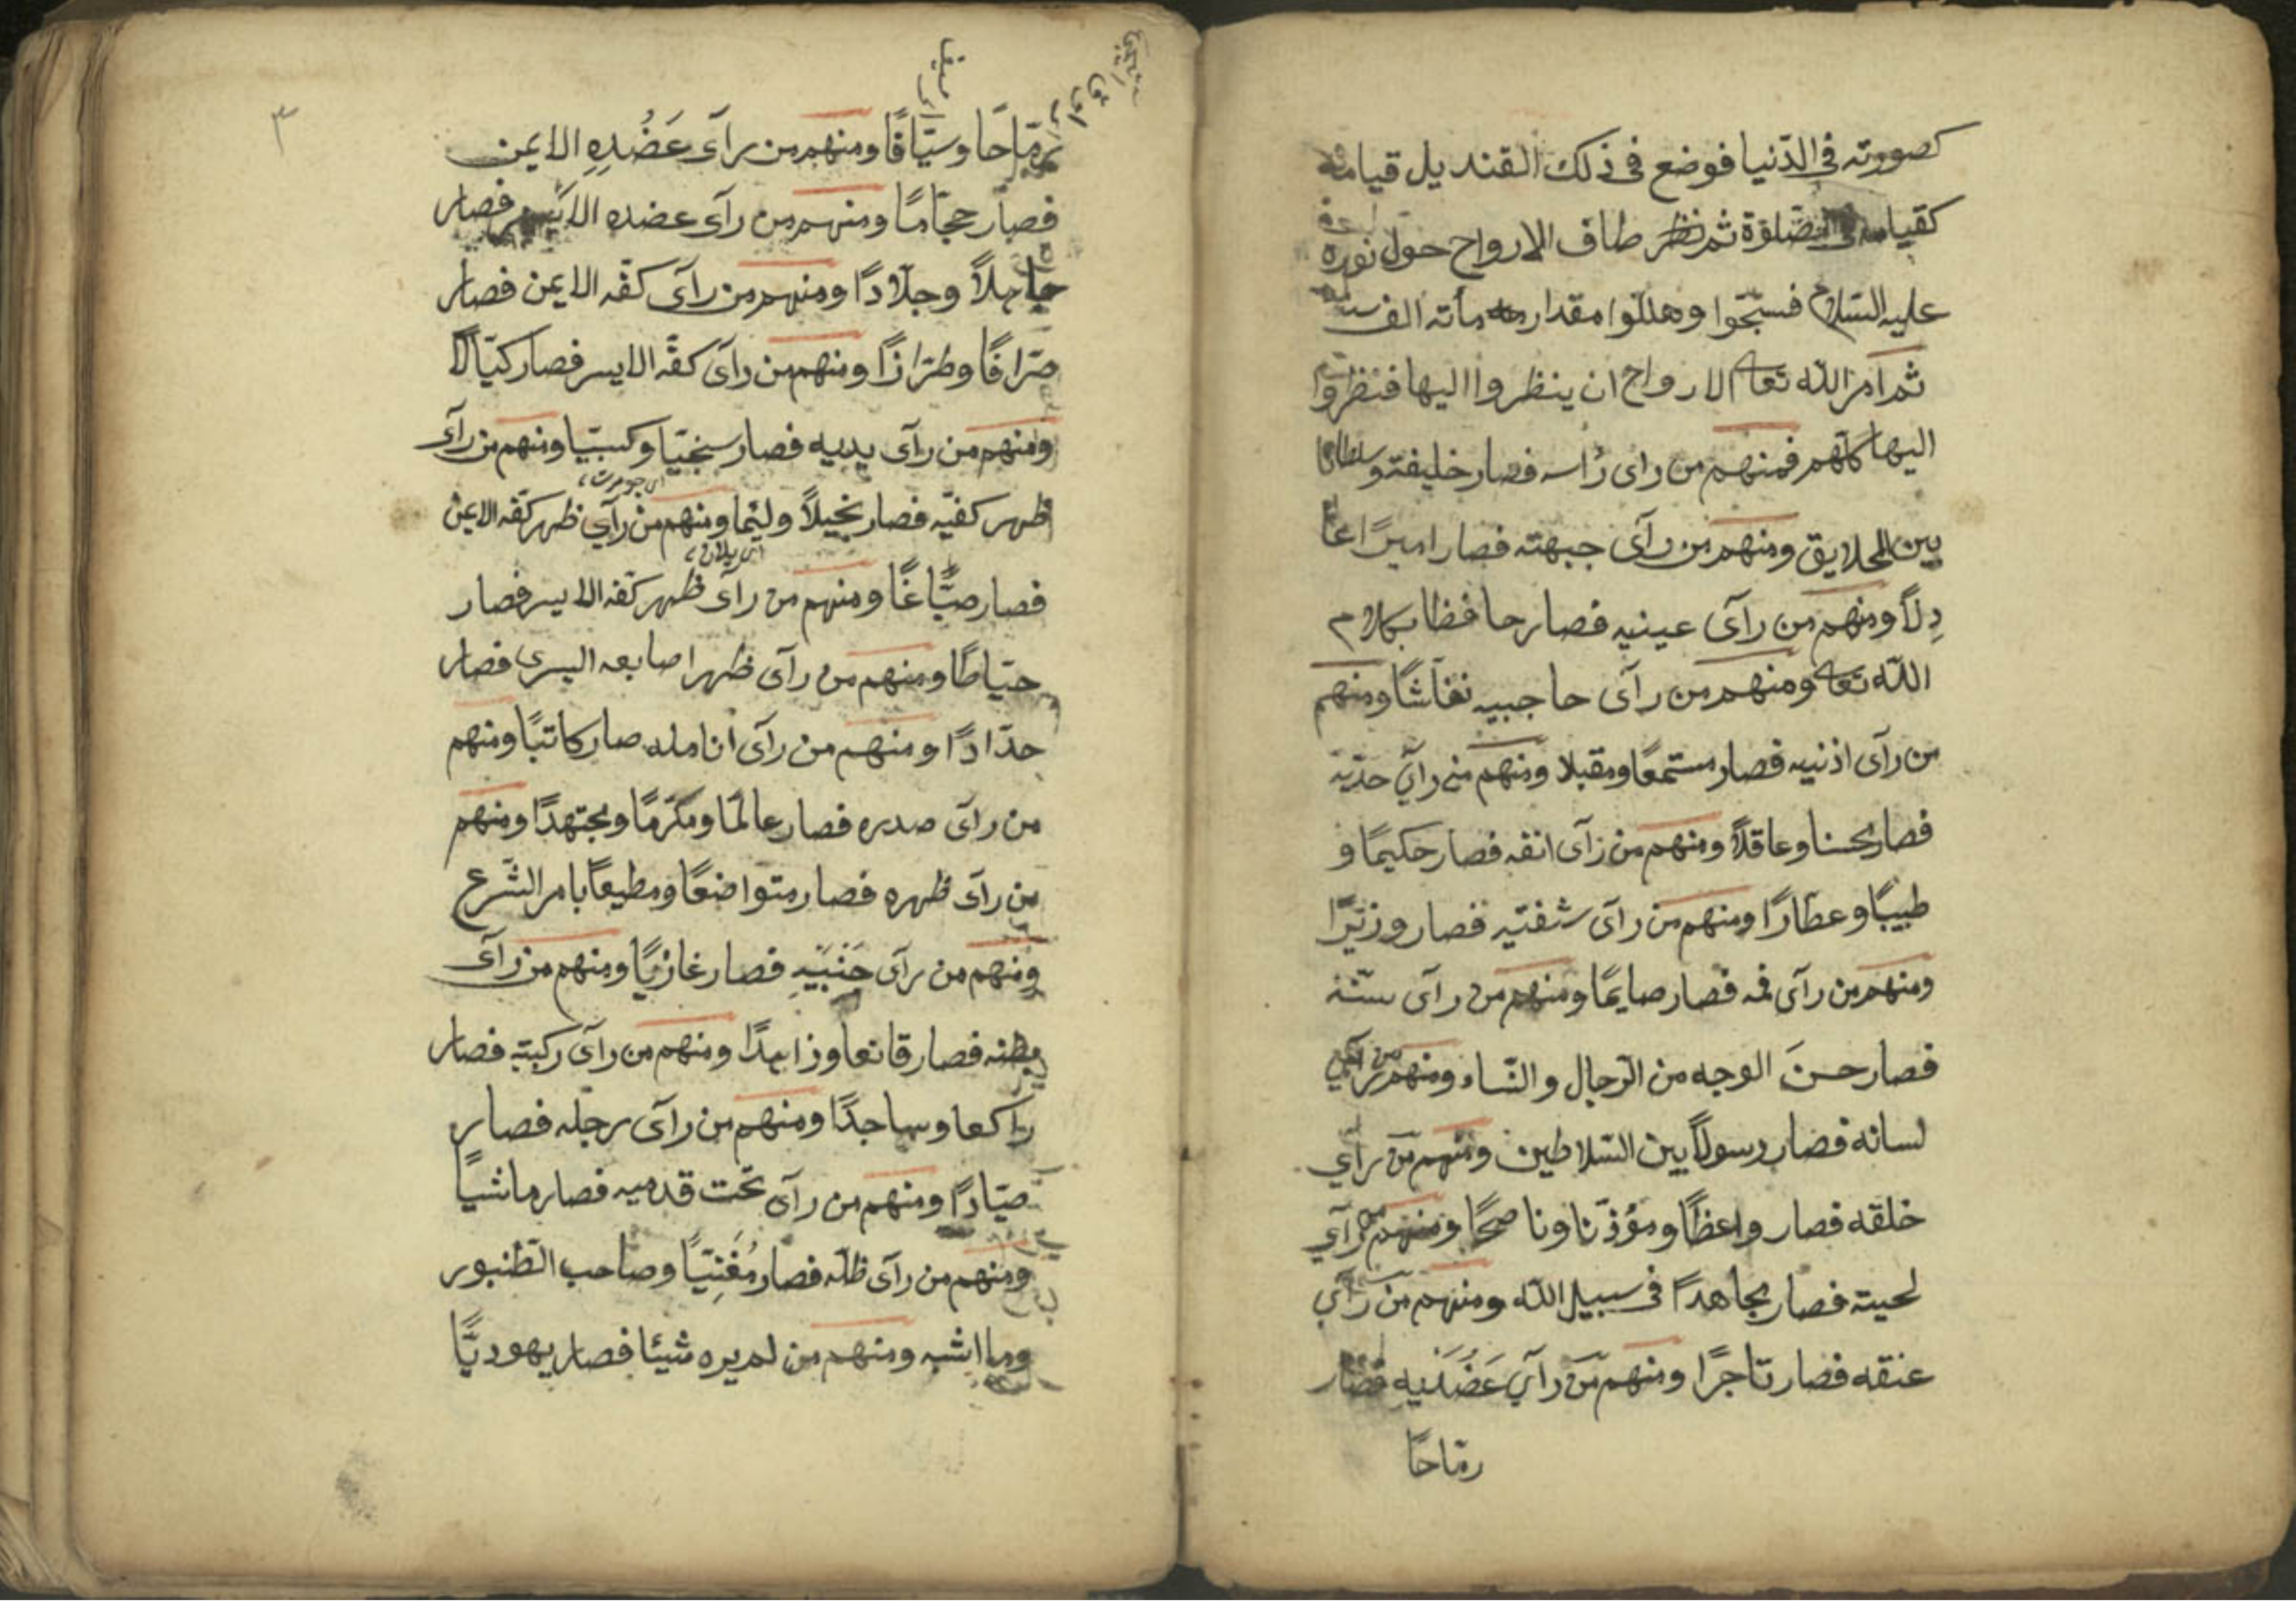 كصورته فى الدّنيا فوضع فى ذلك القنديل قيامه
كقيامه فى الصّلوة ثم نظر طاف الارواح حول نوره
عليه السّلام فسبّحوا وهللّوا مقدار مأته الف سنه
ثم امر الله تعالى الارواح ان ينظروا اليها فنظروا
اليها كلّهم فمنهم من راى رأسه فصار خليفته وسلطانا
بين الخلايق ومنهم من رآى جبهته فصار اميرًا عا
دِلاً ومنهم من رآى عينيه فصار حافظا بكلام
الله تعالى ومنهم من رآى حاجبيه نقاشًا ومنهم
من رآى اذنيه فصار مستمعًا ومقبلا ومنهم من رآى خدّيه
فصار محسنا وعاقلاً ومنهم من رآى انفه فصار حكيمًا و
طبيبًا وعطّارًا ومنهم من رآى شفتيه فصار وزيرًا
ومنهم من رآى فمه فصار صايمًا ومنهم من رآى سنّه
فصار حسنَ الوجه من الرّجال والنّساء ومنهم من رآى
لسانه فصار رسولاً بين السّلاطين ومنهم من رآى
خلقه فصار واعظًا ومؤذّنا وناصحًا ومنهم من رآى
لحيته فصار مجاهدًا فى سبيل الله ومنهم من رآى
عنقه فصار تاجرًا ومنهم من رآى عَضُدَيه فصار
رمّاحًا
٣
رمّاحًا وسيّافًا ومنهم من رآى عَضُدِهِ الايمن
فصار حجّامًا ومنهم من رآى عضده الايسر فصار
جاهلاً وجلّادًا ومنهم من رآى كفّه الايمن فصار
صرّافًا وطرّازًا ومنهم من رآى كفّه الايسر فصار كيّالاً
ومنهم من رآى يديه فصار سخيّا وكسبيّا ومنهم من رآى
اى جومرت
ظهر كفيّه فصار بخيلاً ولئيما ومنهم من رآى ظهر كفّه الايمن
فصار صبّاغًا ومنهم من رآى ظهر كفّه الايسر فصار
خيّاطًا ومنهم من رآى ظهر اصابعه اليسرى فصار
حدّادًا ومنهم من رآى انامله صار كاتبًا ومنهم
من رآى صدره فصار عالمًا ومكرّمًا ومجتهدًا ومنهم
من رآى ظهره فصار متواضعًا ومطيعًا بامر الشّرع
ومنهم من رآى جَنْبَيهِ فصار غازيًا ومنهم من رآى
بطنه فصار قانعا وزاهدًا ومنهم من رآى ركبته فصار
راكعا وساجدًا ومنهم من رآى رجله فصار
صيّادًا ومنهم من رآى تحت قدميه فصار ماشيًا
ومنهم من رآى ظلّه فصار مُغَنِيّيًا وصاحب الطّنبور
وما اشبه ومنهم من لم يره شيئا فصار يهوديًّا